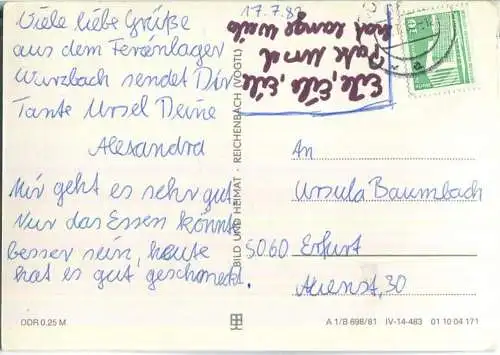 Viele liebe Grüße
aus dem Ferienlager
Wurzbach sendet Dir
Tante Ursel Deine
Alexandra
Mir geht es sehr gut
Nur das Essen könnte
besser sein, heute
hat es gut geschmeckt.
17.7.82
Eile, Eile, Eile
Ursel
hat lange
BILD UND HEIMAT · REICHENBACH (VOGTL)
10
An
Ursula Baumbach
5060 Erfurt
30
DDR 0.25 M
A 1/B 698/81 IV-14-483 01 10 04 171